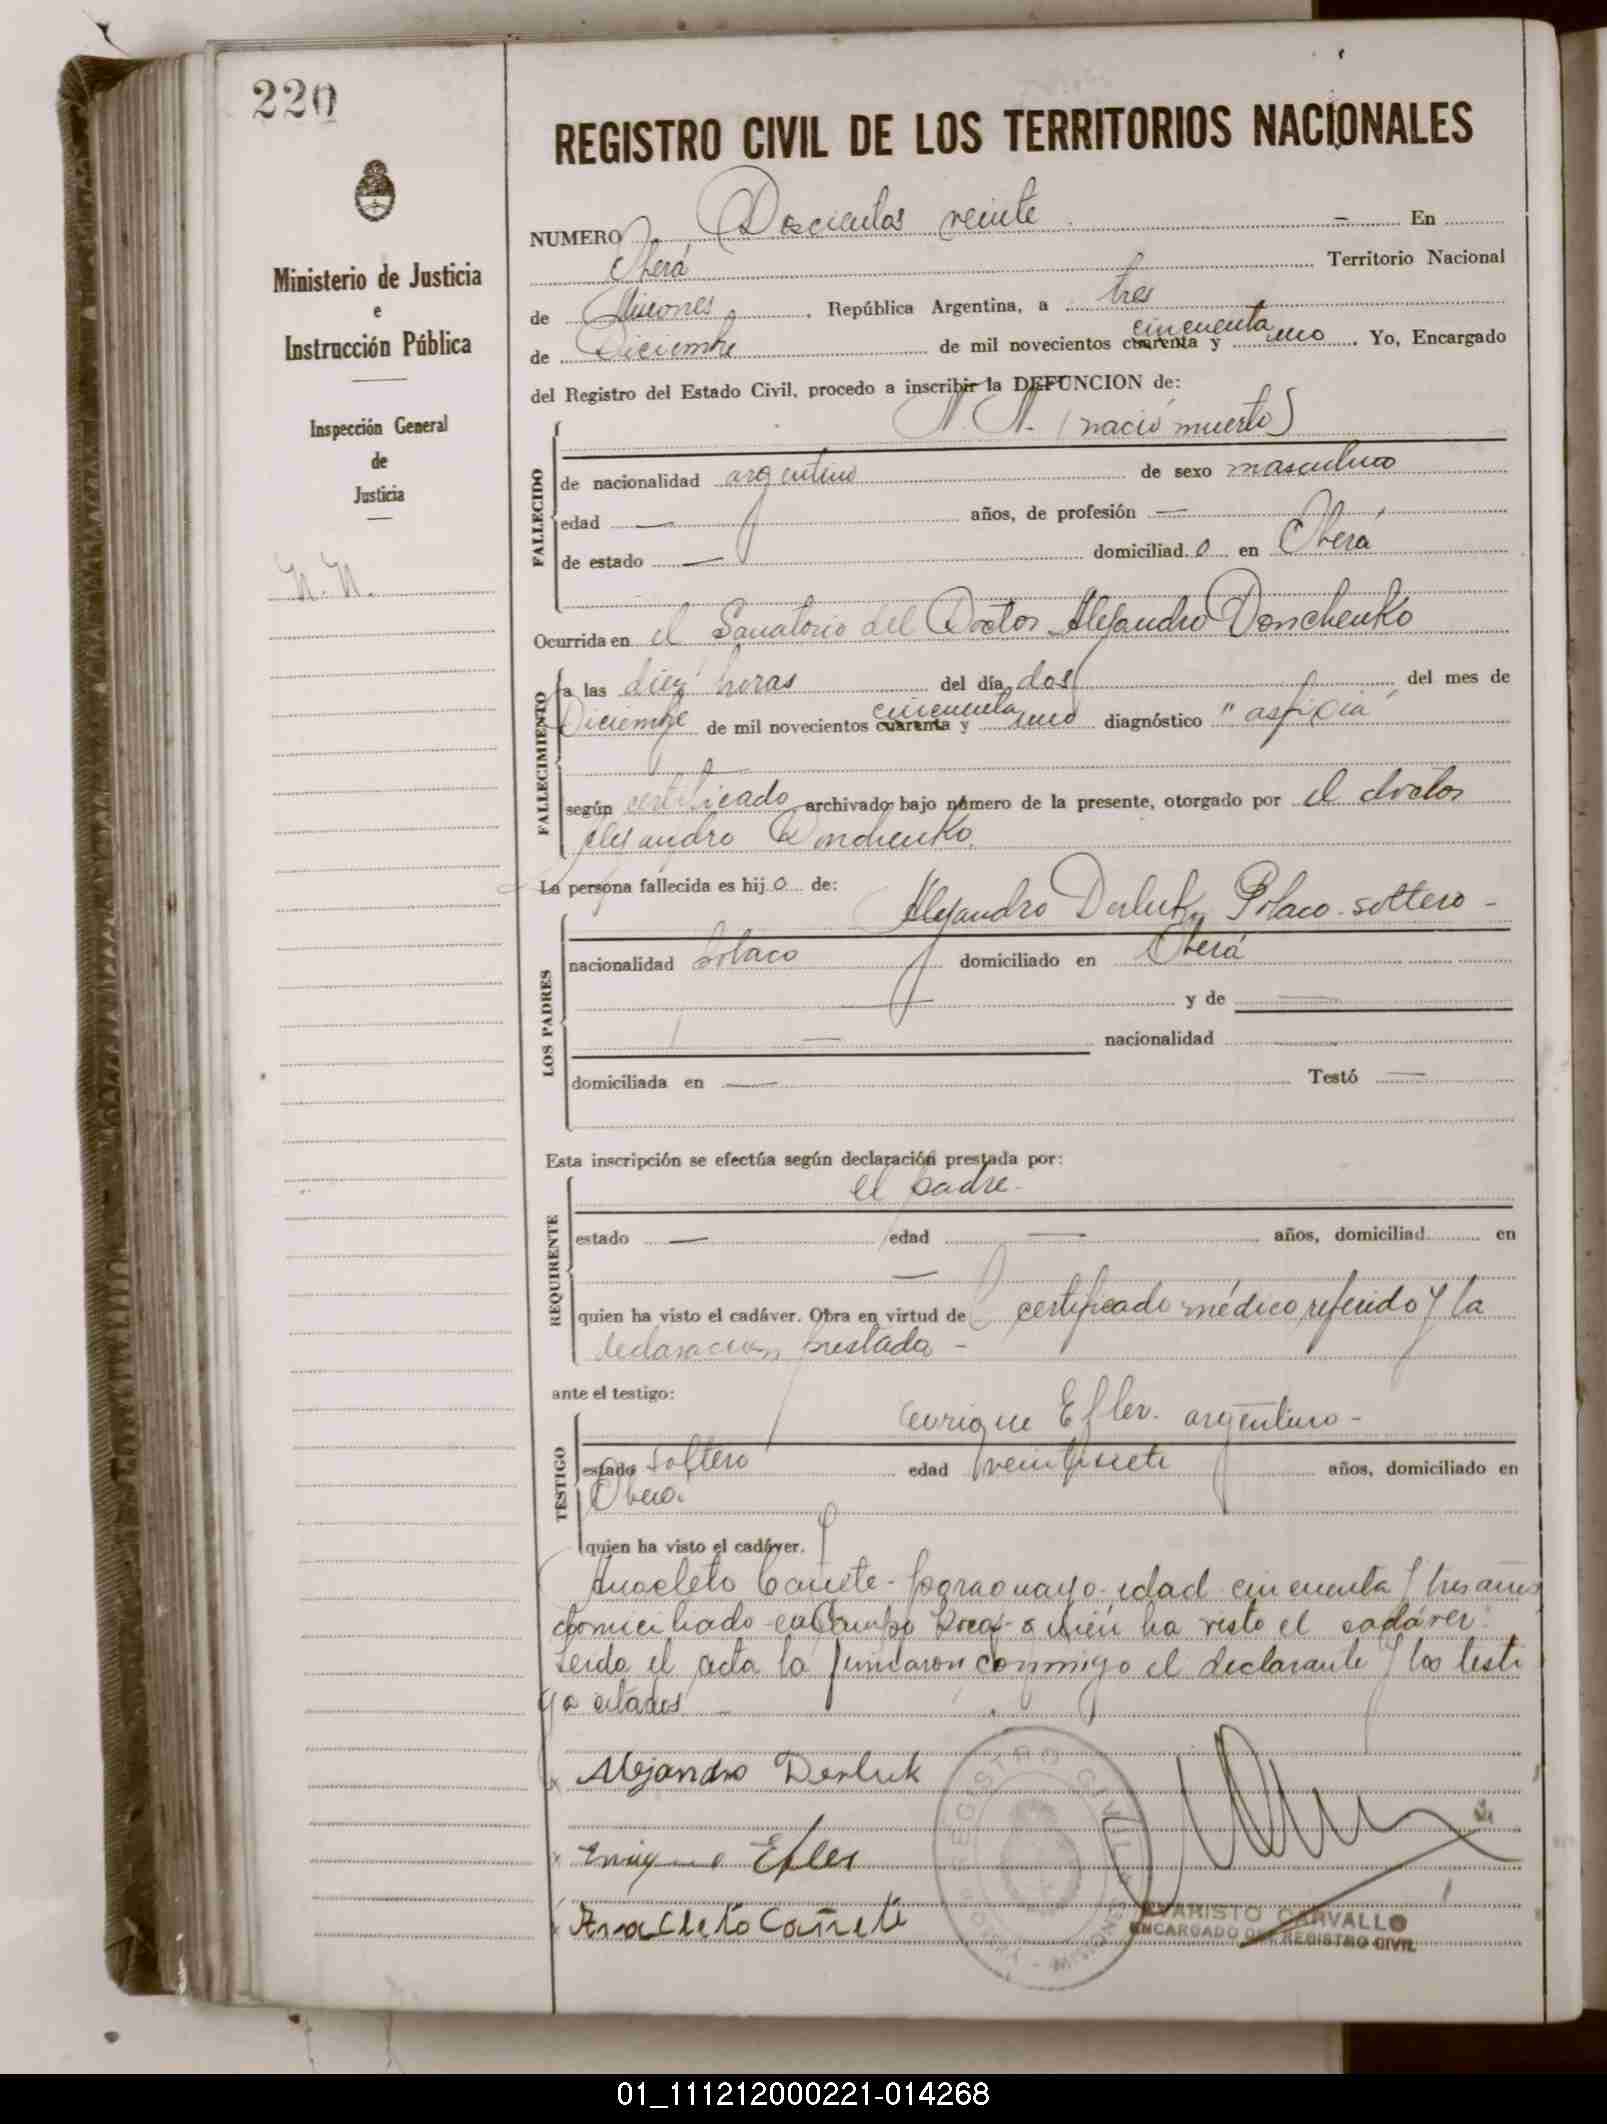 220
Ministerio de Justicia
e
Instrucción Pública
Inspección General
de
Justicia
N. N.
REGISTRO CIVIL DE LOS TERRITORIOS NACIONALES
NUMERO Doscientos veinte – En
Oberá Territorio Nacional
de Misiones, República Argentina, a tres
cincuenta
de Diciembre de mil novecientos cuarenta y uno. Yo, Encargado
del Registro del Estado Civil, procedo a inscribir la DEFUNCION de:
N. N. (nació muerto)
FALLECIDO
de nacionalidad argentino de sexo masculino
edad — años, de profesión —
de estado — domiciliad o en Oberá
Ocurrida en el Sanatorio del Doctor Alejandro Donchenko
FALLECIMIENTO
a las diez horas del día dos del mes de
cincuenta
Diciembre de mil novecientos cuarenta y uno diagnóstico "asfixia"
según certificado archivado bajo número de la presente, otorgado por el doctor
Alejandro Donchenko.
La persona fallecida es hij o de:
LOS PADRES
Alejandro Derluk, Polaco - soltero -
nacionalidad Polaco domiciliado en Oberá
— y de —
— nacionalidad —
domiciliada en — Testó —
Esta inscripción se efectúa según declaración prestada por:
REQUIRENTE
el padre.
estado — edad — años, domiciliad en
—
quien ha visto el cadáver. Obra en virtud de certificado médico referido y la
declaración prestada -
ante el testigo:
TESTIGO
Enrique Efler. argentino -
estado soltero edad veintisiete años, domiciliado en
Oberá.
quien ha visto el cadáver.
Anacleto Cañete - paraguayo - edad cincuenta y tres años
domiciliado en Campo quién ha visto el cadáver.
Leida el acta la firmaron conmigo el declarante y los testi
go citados –
x Alejandro Derluk
x Enrique Efler
x Anacleto Cañete
REGISTRO CIVIL
MISIONES
EVARISTO CARVALLO
ENCARGADO DEL REGISTRO CIVIL
01_111212000221-014268